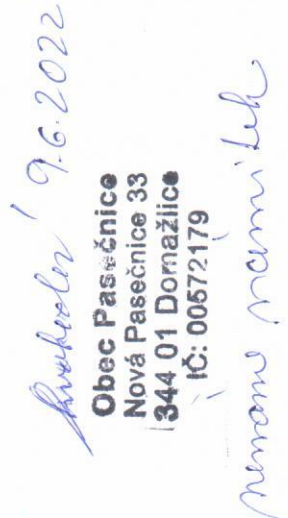 9.6.2022
Obec Pasečnice
Nová Pasečnice 33
344 01 Domažlice
IČ: 00572179
nemáme námitek